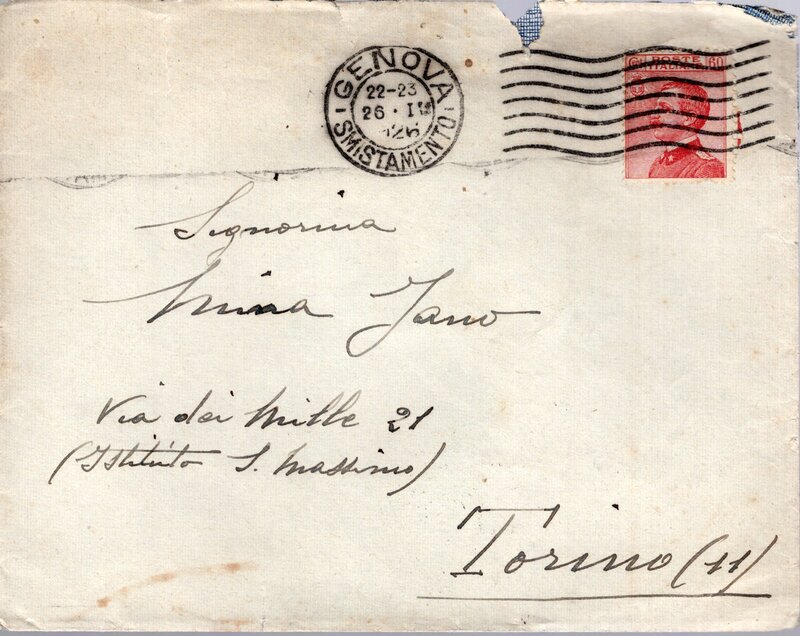 GENOVA
22-23
26 · I
26
SMISTAMENTO
POSTE 60
ITALIANE
Signorina
Mina Jano
Via dei Mille 21
(Istituto S. Massimo)
Torino (11)